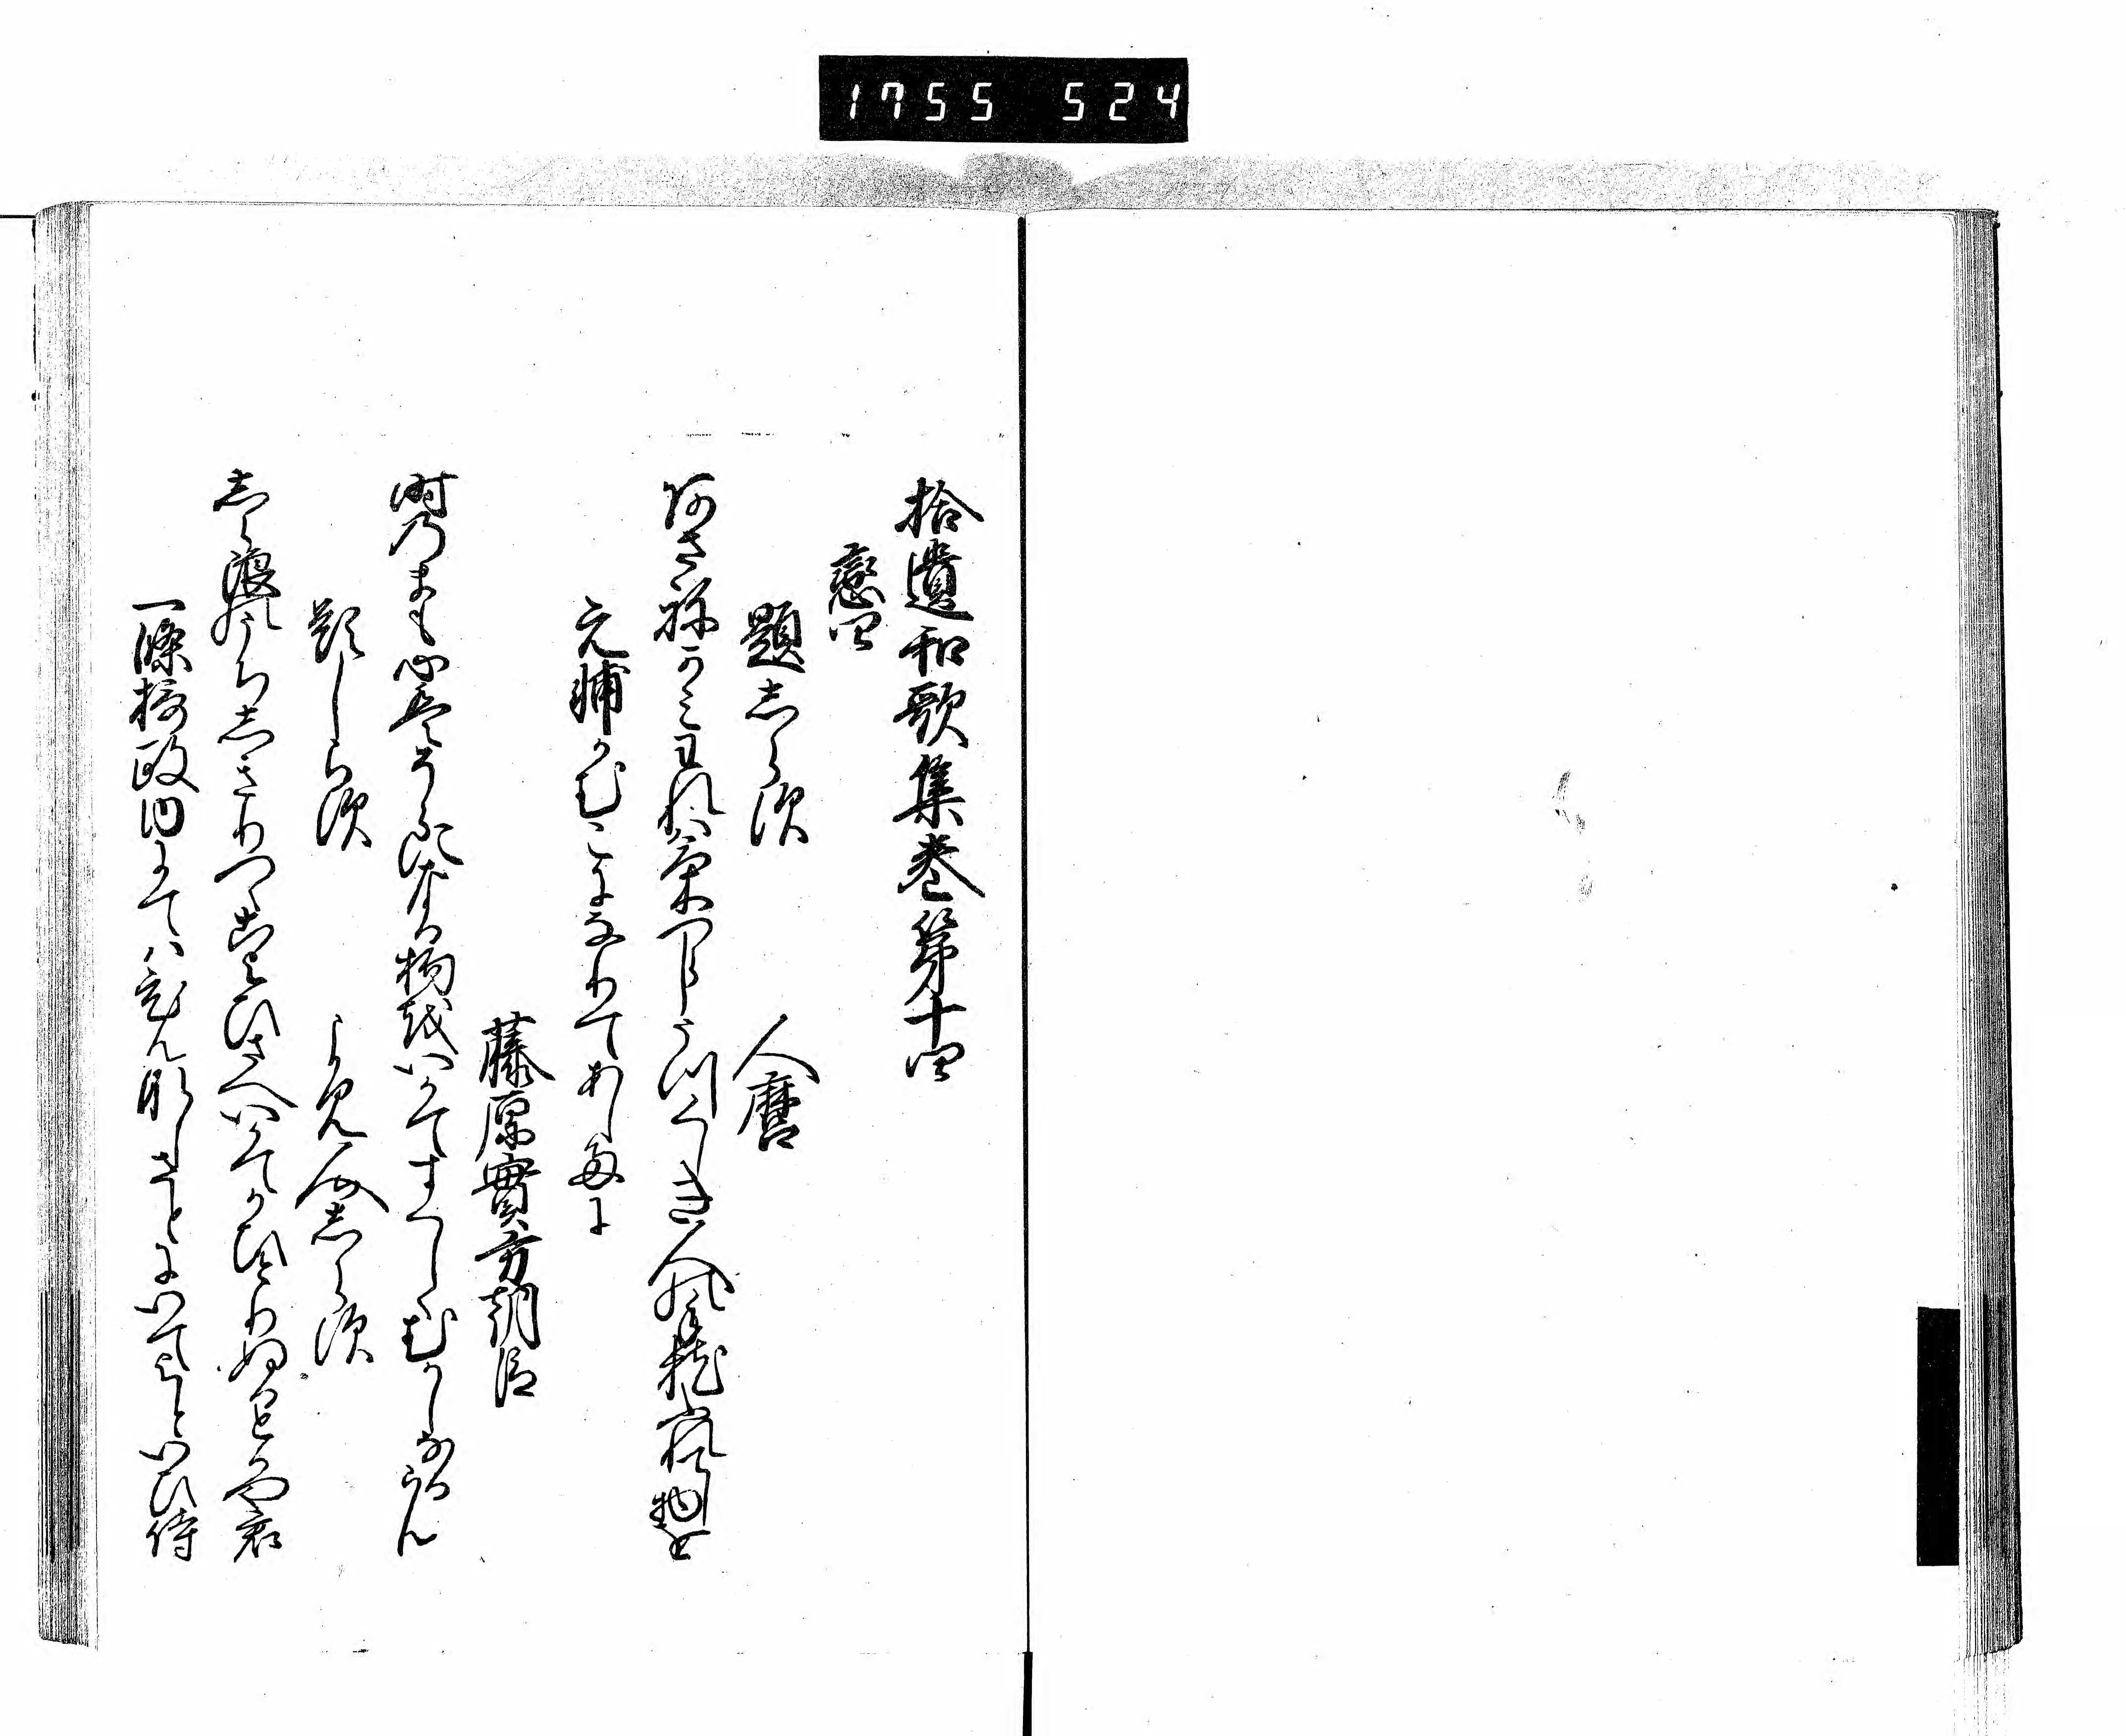 1755 524
拾遺和歌集巻第十四
戀四
題志らす
人麿
あさねかみ我はけつらしうつくしき人の手枕ふれてし物を
元輔かむこになりてあしたに
藤原實方朝臣
時のまも心は空になる物をいかてすくしゝむかしなるらん
題しらす
よみ人志らす
志ら浪のうち志きりつゝこよひさへいかてかひとりぬるとかや君
一條摂政内にてはひんなしさとにいてよといひ侍